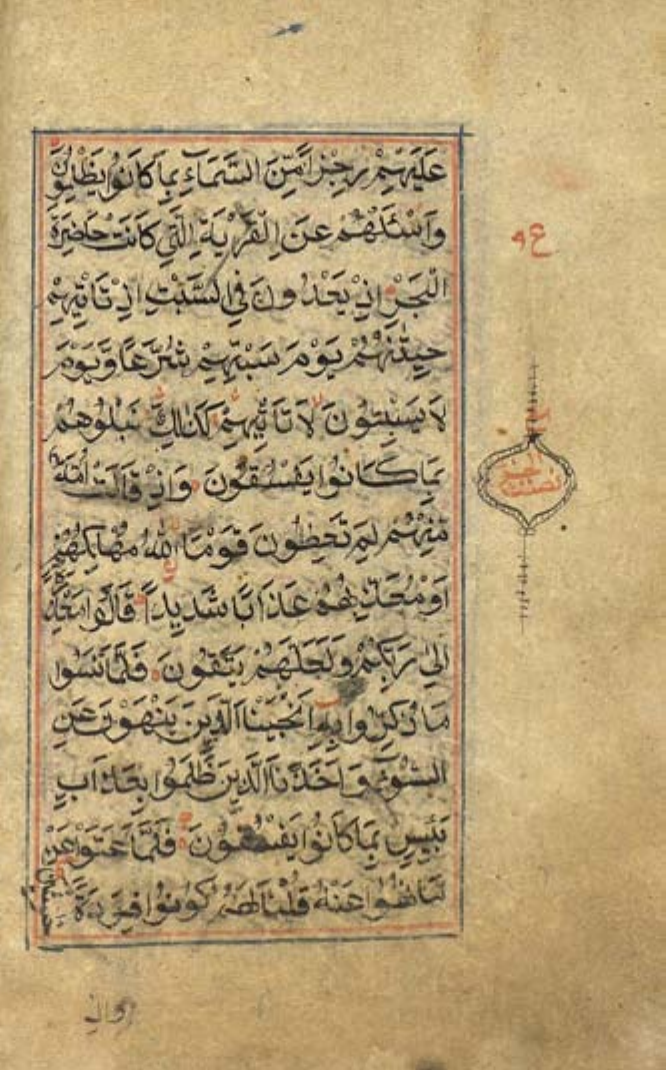 عَلَيْهِمْ رِجْزًا مِّنَ السَّمَآءِ بِمَا كَانُوا يَظْلِمُونَ
وَاسْئَلْهُمْ عَنِ الْقَرْيَةِ الَّتِي كَانَتْ حَاضِرَةَ
الْبَحْرِ اِذْ يَعْدُونَ فِي السَّبْتِ اِذْ تَاْتِيهِمْ
حِيتٰنُهُمْ يَوْمَ سَبْتِهِمْ شُرَّعًا وَّيَوْمَ
لَا يَسْبِتُونَ لَا تَاْتِيهِمْ كَذٰلِكَ نَبْلُوهُمْ
بِمَا كَانُوا يَفْسُقُونَ وَاِذْ قَالَتْ اُمَّةٌ
مِّنْهُمْ لِمَ تَعِظُونَ قَوْمًا اللهُ مُهْلِكُهُمْ
اَوْ مُعَذِّبُهُمْ عَذَابًا شَدِيدًا قَالُوا مَعْذِرَةً
اِلٰى رَبِّكُمْ وَلَعَلَّهُمْ يَتَّقُونَ فَلَمَّا نَسُوا
مَا ذُكِّرُوا بِهِ اَنْجَيْنَا الَّذِينَ يَنْهَوْنَ عَنِ
السُّوٓءِ وَاَخَذْنَا الَّذِينَ ظَلَمُوا بِعَذَابٍ
بَئِيسٍ بِمَا كَانُوا يَفْسُقُونَ فَلَمَّا عَتَوْا عَنْ
مَا نُهُوا عَنْهُ قُلْنَا لَهُمْ كُونُوا قِرَدَةً
خَاسِئِينَ
واذ